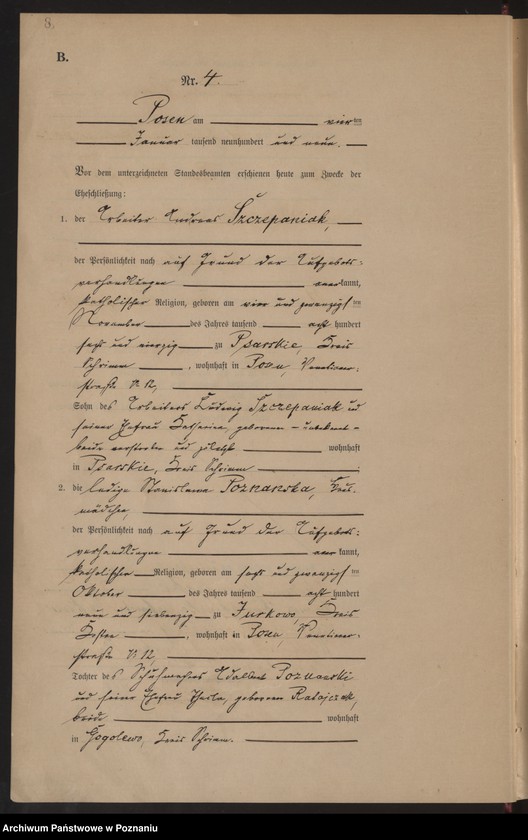 8.
B.
Nr. 4.
Posen am vierten
Januar tausend neunhundert und neun.
Vor dem unterzeichneten Standesbeamten erschienen heute zum Zwecke der
Eheschließung:
1. der Arbeiter Andreas Szczepaniak,
der Persönlichkeit nach auf Grund der Aufgebots-
verhandlungen anerkannt,
katholischer Religion, geboren am vier und zwanzigsten
November des Jahres tausend acht hundert
sechs und vierzig zu Psarskie, Kreis
Schrimm, wohnhaft in Posen, Venetianer-
straße N 12,
Sohn des Arbeiters Ludwig Szczepaniak und
seiner Ehefrau Katharina, geborenen - unbekannt -
beide verstorben und zuletzt wohnhaft
in Psarskie, Kreis Schrimm.
2. die ledige Stanislawa Poznanska, Haus-
mädchen,
der Persönlichkeit nach auf Grund der Aufgebots-
verhandlungen anerkannt,
katholischer Religion, geboren am sechs und zwanzigsten
Oktober des Jahres tausend acht hundert
neun und siebenzig zu Jurkowo, Kreis
Kosten, wohnhaft in Posen, Venetianer-
straße N 12,
Tochter des Schuhmachers Adalbert Poznanski
und seiner Ehefrau Thekla, geborenen Ratajczak,
beide wohnhaft
in Gogolewo, Kreis Schrimm.
Archiwum Państwowe w Poznaniu